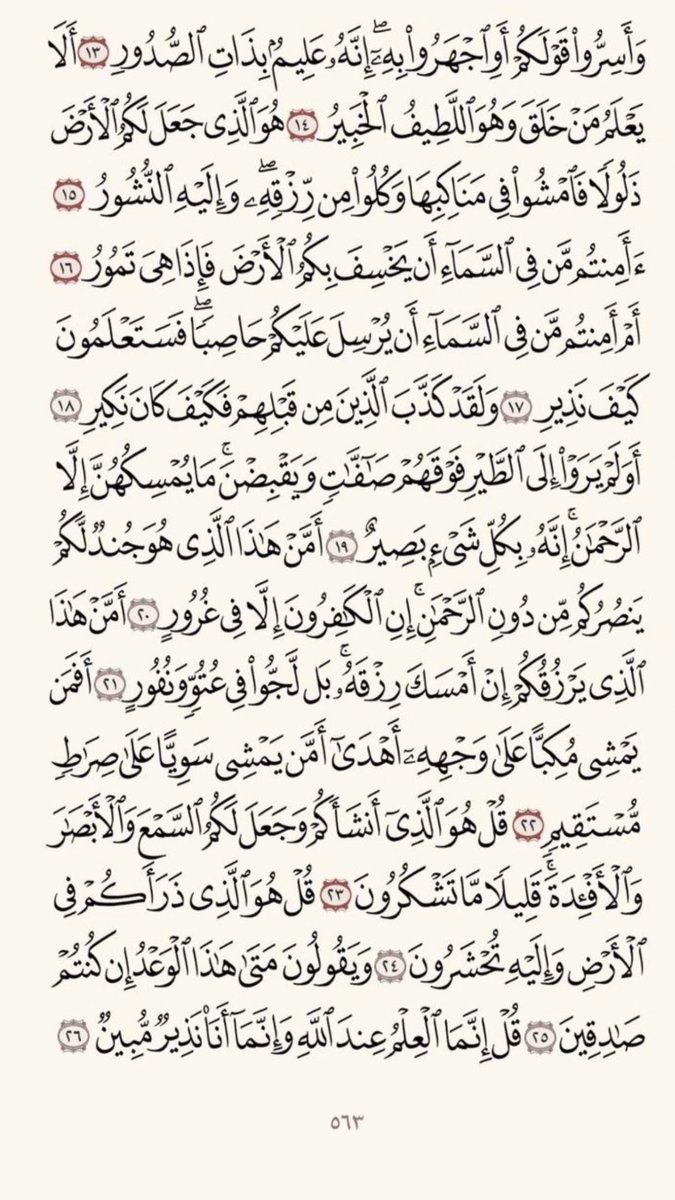 وَأَسِرُّوا۟ قَوْلَكُمْ أَوِ ٱجْهَرُوا۟ بِهِۦٓ ۖ إِنَّهُۥ عَلِيمٌۢ بِذَاتِ ٱلصُّدُورِ ١٣ أَلَا
يَعْلَمُ مَنْ خَلَقَ وَهُوَ ٱللَّطِيفُ ٱلْخَبِيرُ ١٤ هُوَ ٱلَّذِى جَعَلَ لَكُمُ ٱلْأَرْضَ
ذَلُولًا فَٱمْشُوا۟ فِى مَنَاكِبِهَا وَكُلُوا۟ مِن رِّزْقِهِۦ ۖ وَإِلَيْهِ ٱلنُّشُورُ ١٥
ءَأَمِنتُم مَّن فِى ٱلسَّمَآءِ أَن يَخْسِفَ بِكُمُ ٱلْأَرْضَ فَإِذَا هِىَ تَمُورُ ١٦
أَمْ أَمِنتُم مَّن فِى ٱلسَّمَآءِ أَن يُرْسِلَ عَلَيْكُمْ حَاصِبًا ۖ فَسَتَعْلَمُونَ
كَيْفَ نَذِيرِ ١٧ وَلَقَدْ كَذَّبَ ٱلَّذِينَ مِن قَبْلِهِمْ فَكَيْفَ كَانَ نَكِيرِ ١٨
أَوَلَمْ يَرَوْا۟ إِلَى ٱلطَّيْرِ فَوْقَهُمْ صَـٰٓفَّـٰتٍ وَيَقْبِضْنَ ۚ مَا يُمْسِكُهُنَّ إِلَّا
ٱلرَّحْمَـٰنُ ۚ إِنَّهُۥ بِكُلِّ شَىْءٍۭ بَصِيرٌ ١٩ أَمَّنْ هَـٰذَا ٱلَّذِى هُوَ جُندٌ لَّكُمْ
يَنصُرُكُم مِّن دُونِ ٱلرَّحْمَـٰنِ ۚ إِنِ ٱلْكَـٰفِرُونَ إِلَّا فِى غُرُورٍ ٢٠ أَمَّنْ هَـٰذَا
ٱلَّذِى يَرْزُقُكُمْ إِنْ أَمْسَكَ رِزْقَهُۥ ۚ بَل لَّجُّوا۟ فِى عُتُوٍّ وَنُفُورٍ ٢١ أَفَمَن
يَمْشِى مُكِبًّا عَلَىٰ وَجْهِهِۦٓ أَهْدَىٰٓ أَمَّن يَمْشِى سَوِيًّا عَلَىٰ صِرَٰطٍ
مُّسْتَقِيمٍ ٢٢ قُلْ هُوَ ٱلَّذِىٓ أَنشَأَكُمْ وَجَعَلَ لَكُمُ ٱلسَّمْعَ وَٱلْأَبْصَـٰرَ
وَٱلْأَفْـِٔدَةَ ۖ قَلِيلًا مَّا تَشْكُرُونَ ٢٣ قُلْ هُوَ ٱلَّذِى ذَرَأَكُمْ فِى
ٱلْأَرْضِ وَإِلَيْهِ تُحْشَرُونَ ٢٤ وَيَقُولُونَ مَتَىٰ هَـٰذَا ٱلْوَعْدُ إِن كُنتُمْ
صَـٰدِقِينَ ٢٥ قُلْ إِنَّمَا ٱلْعِلْمُ عِندَ ٱللَّهِ وَإِنَّمَآ أَنَا۠ نَذِيرٌ مُّبِينٌ ٢٦
٥٦٣